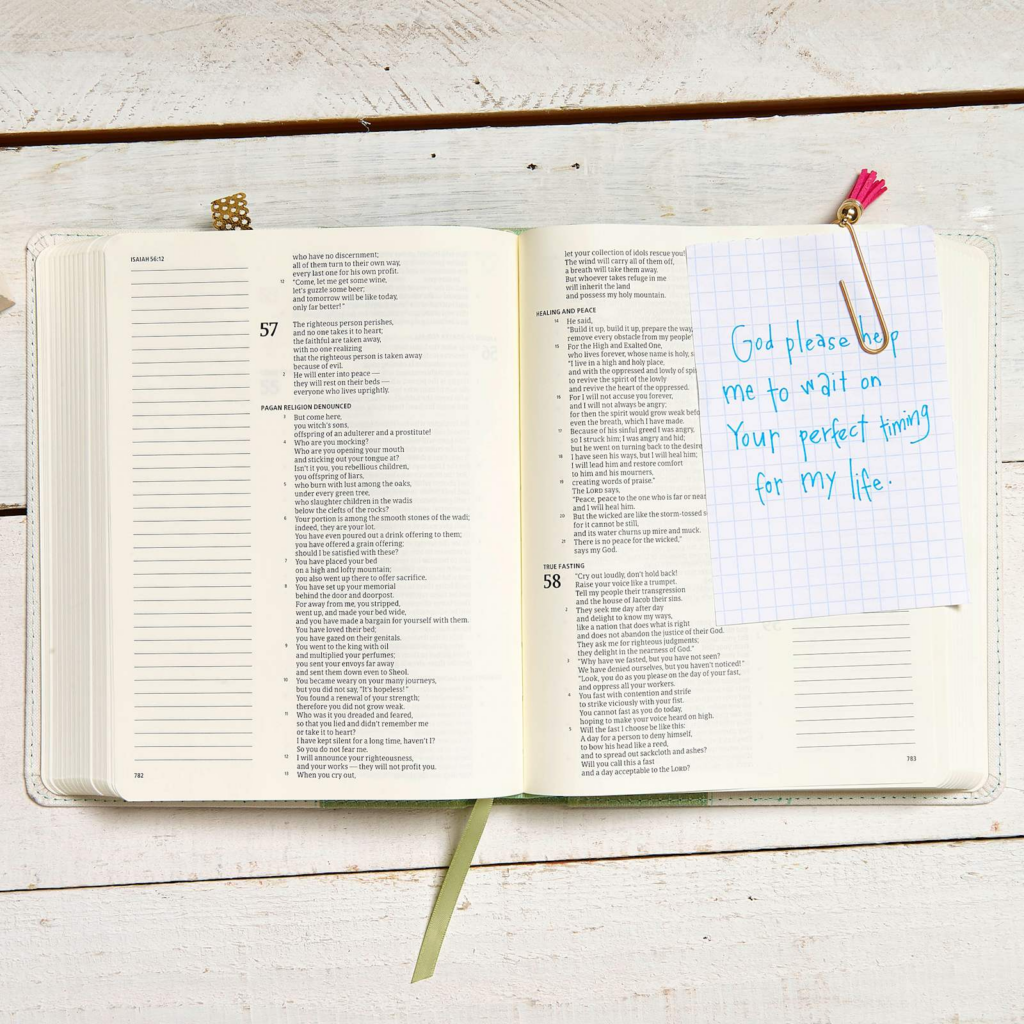 ISAIAH 56:12
who have no discernment;
all of them turn to their own way,
every last one for his own profit.
12 "Come, let me get some wine,
let's guzzle some beer;
and tomorrow will be like today,
only far better!"
57 The righteous person perishes,
and no one takes it to heart;
the faithful are taken away,
with no one realizing
that the righteous person is taken away
because of evil.
2 He will enter into peace —
they will rest on their beds —
everyone who lives uprightly.
PAGAN RELIGION DENOUNCED
3 But come here,
you witch's sons,
offspring of an adulterer and a prostitute!
4 Who are you mocking?
Who are you opening your mouth
and sticking out your tongue at?
Isn't it you, you rebellious children,
you offspring of liars,
5 who burn with lust among the oaks,
under every green tree,
who slaughter children in the wadis
below the clefts of the rocks?
6 Your portion is among the smooth stones of the wadi;
indeed, they are your lot.
You have even poured out a drink offering to them;
you have offered a grain offering;
should I be satisfied with these?
7 You have placed your bed
on a high and lofty mountain;
you also went up there to offer sacrifice.
8 You have set up your memorial
behind the door and doorpost.
For away from me, you stripped,
went up, and made your bed wide,
and you have made a bargain for yourself with them.
You have loved their bed;
you have gazed on their genitals.
9 You went to the king with oil
and multiplied your perfumes;
you sent your envoys far away
and sent them down even to Sheol.
10 You became weary on your many journeys,
but you did not say, "It's hopeless!"
You found a renewal of your strength;
therefore you did not grow weak.
11 Who was it you dreaded and feared,
so that you lied and didn't remember me
or take it to heart?
I have kept silent for a long time, haven't I?
So you do not fear me.
12 I will announce your righteousness,
and your works — they will not profit you.
13 When you cry out,
782
let your collection of idols rescue you!
The wind will carry all of them off,
a breath will take them away.
But whoever takes refuge in me
will inherit the land
and possess my holy mountain.
HEALING AND PEACE
14 He said,
"Build it up, build it up, prepare the way,
remove every obstacle from my people's
15 For the High and Exalted One,
who lives forever, whose name is holy,
"I live in a high and holy place,
and with the oppressed and lowly of
to revive the spirit of the lowly
and revive the heart of the oppressed.
16 For I will not accuse you forever,
and I will not always be angry;
for then the spirit would grow weak
even the breath, which I have made.
17 Because of his sinful greed I was angry,
so I struck him; I was angry and hid;
but he went on turning back to the
18 I have seen his ways, but I will heal him;
I will lead him and restore comfort
to him and his mourners,
19 creating words of praise."
The LORD says,
"Peace, peace to the one who is far or
and I will heal him.
20 But the wicked are like the storm-tossed
for it cannot be still,
and its water churns up mire and muck.
21 There is no peace for the wicked,"
says my God.
TRUE FASTING
58 "Cry out loudly, don't hold back!
Raise your voice like a trumpet.
Tell my people their transgression
and the house of Jacob their sins.
2 They seek me day after day
and delight to know my ways,
like a nation that does what is right
and does not abandon the justice of their God.
They ask me for righteous judgments;
they delight in the nearness of God."
3 "Why have we fasted, but you have not seen?
We have denied ourselves, but you haven't noticed!"
"Look, you do as you please on the day of your fast,
and oppress all your workers.
4 You fast with contention and strife
to strike viciously with your fist.
You cannot fast as you do today,
hoping to make your voice heard on high.
5 Will the fast I choose be like this:
A day for a person to deny himself,
to bow his head like a reed,
and to spread out sackcloth and ashes?
Will you call this a fast
and a day acceptable to the LORD?
783
God please help
me to wait on
Your perfect timing
for my life.